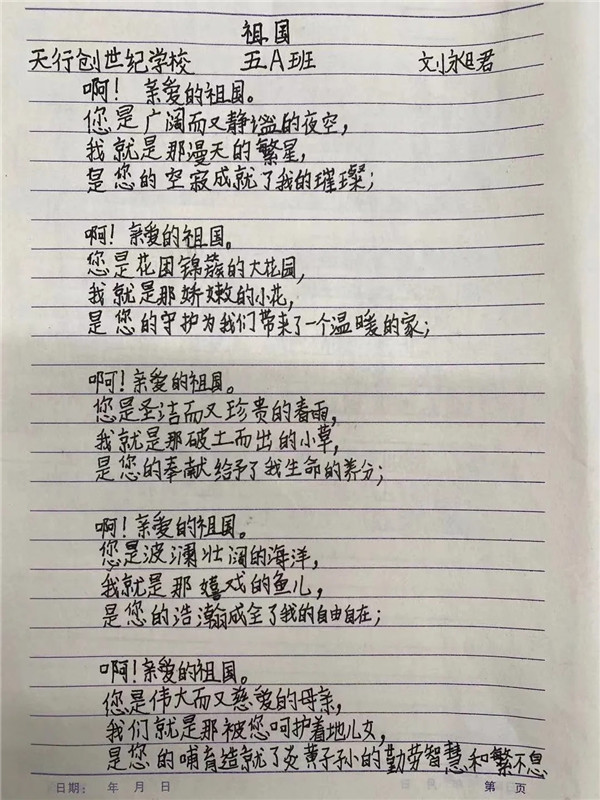 祖国
天行创世纪学校 五A班 刘脉君
啊！亲爱的祖国。
您是广阔而又静谧的夜空，
我就是那漫天的繁星，
是您的空寂成就了我的璀璨；
啊！亲爱的祖国。
您是花团锦簇的大花园，
我就是那娇嫩的小花，
是您的守护为我们带来了一个温暖的家；
啊！亲爱的祖国。
您是圣洁而又珍贵的春雨，
我就是那破土而出的小草，
是您的奉献给予了我生命的养分；
啊！亲爱的祖国。
您是波澜壮阔的海洋，
我就是那嬉戏的鱼儿，
是您的浩瀚成全了我的自由自在；
啊！亲爱的祖国。
您是伟大而又慈爱的母亲，
我们就是那被您呵护着地儿女，
是您的哺育造就了炎黄子孙的勤劳智慧和繁不息
日期： 年 月 日 第 页